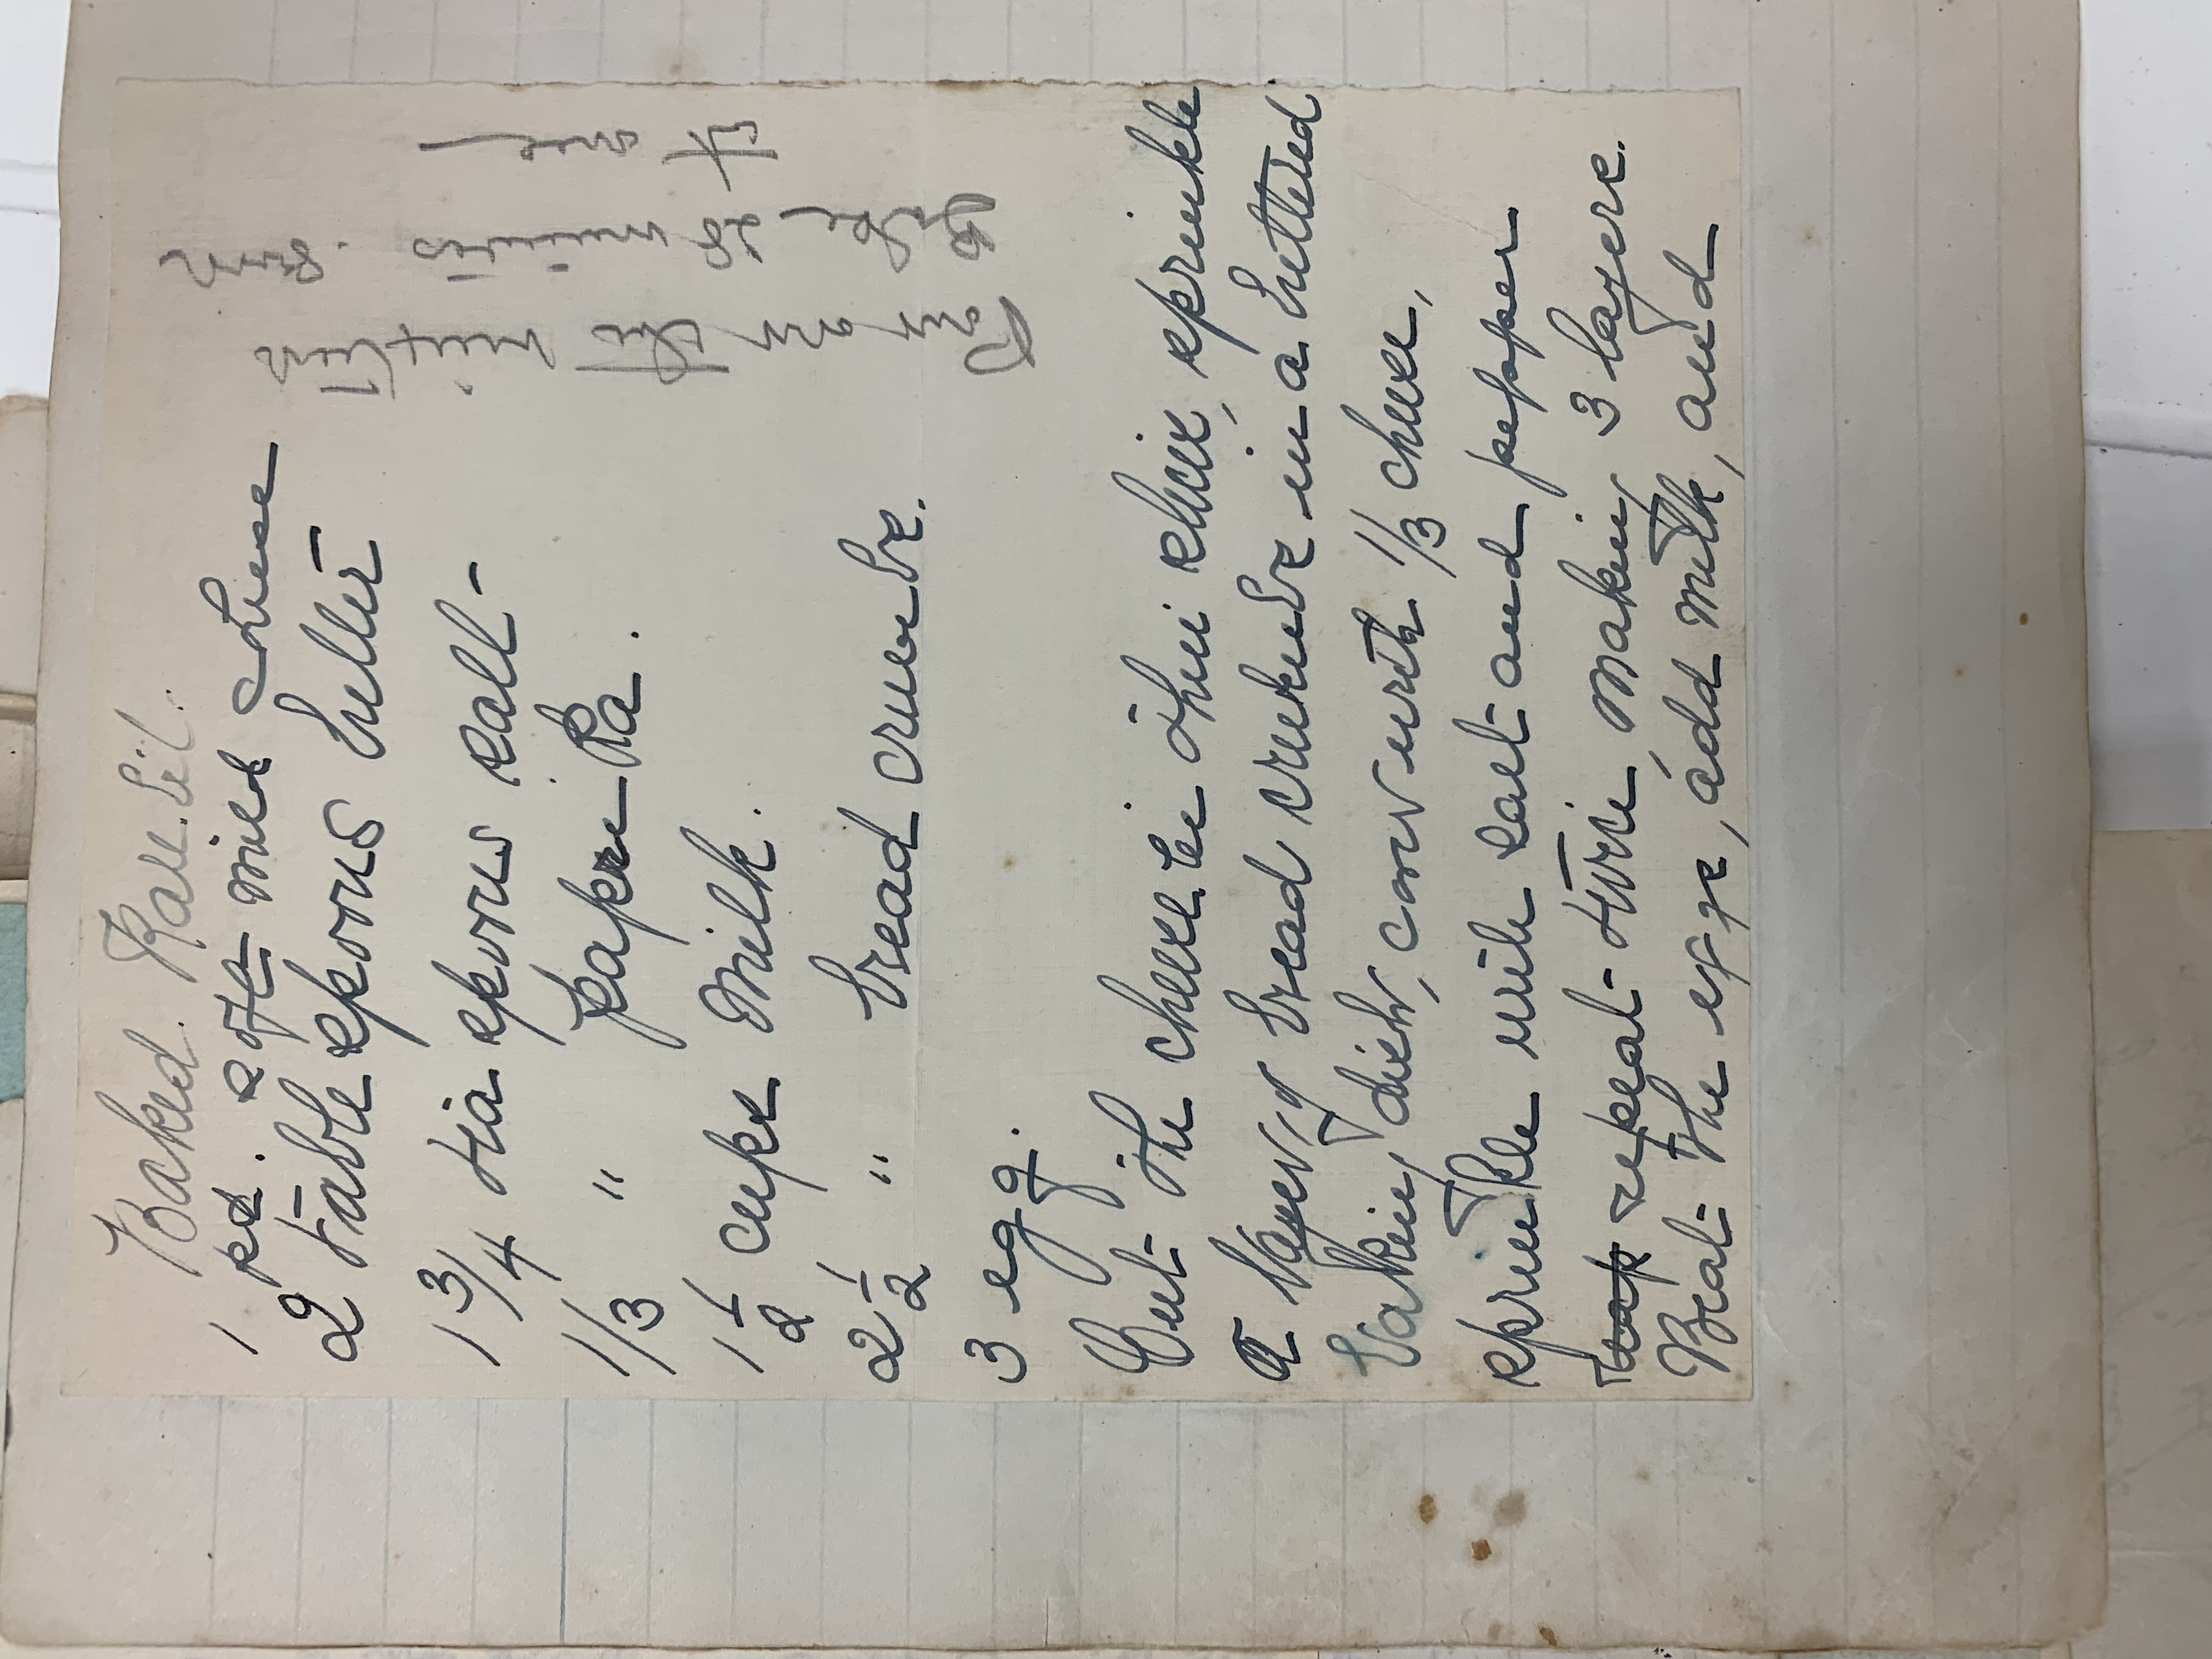 Baked Rarebit.
1 pt. soft mild cheese
2 Table spoons butter
1 3/4 tea spoons salt
1/3 " paprika.
1 1/2 cups milk.
2 1/2 " bread crumbs.
3 egg.
Cut the cheese in thin slices, sprinkle
a layer of bread crumbs in a buttered
baking dish, cover with 1/3 cheese,
sprinkle with salt and pepper
reap repeat twice, making 3 layers.
Beat the eggs, add milk, and
Pour over this mixture
Bake 28 minutes. Serve
at once